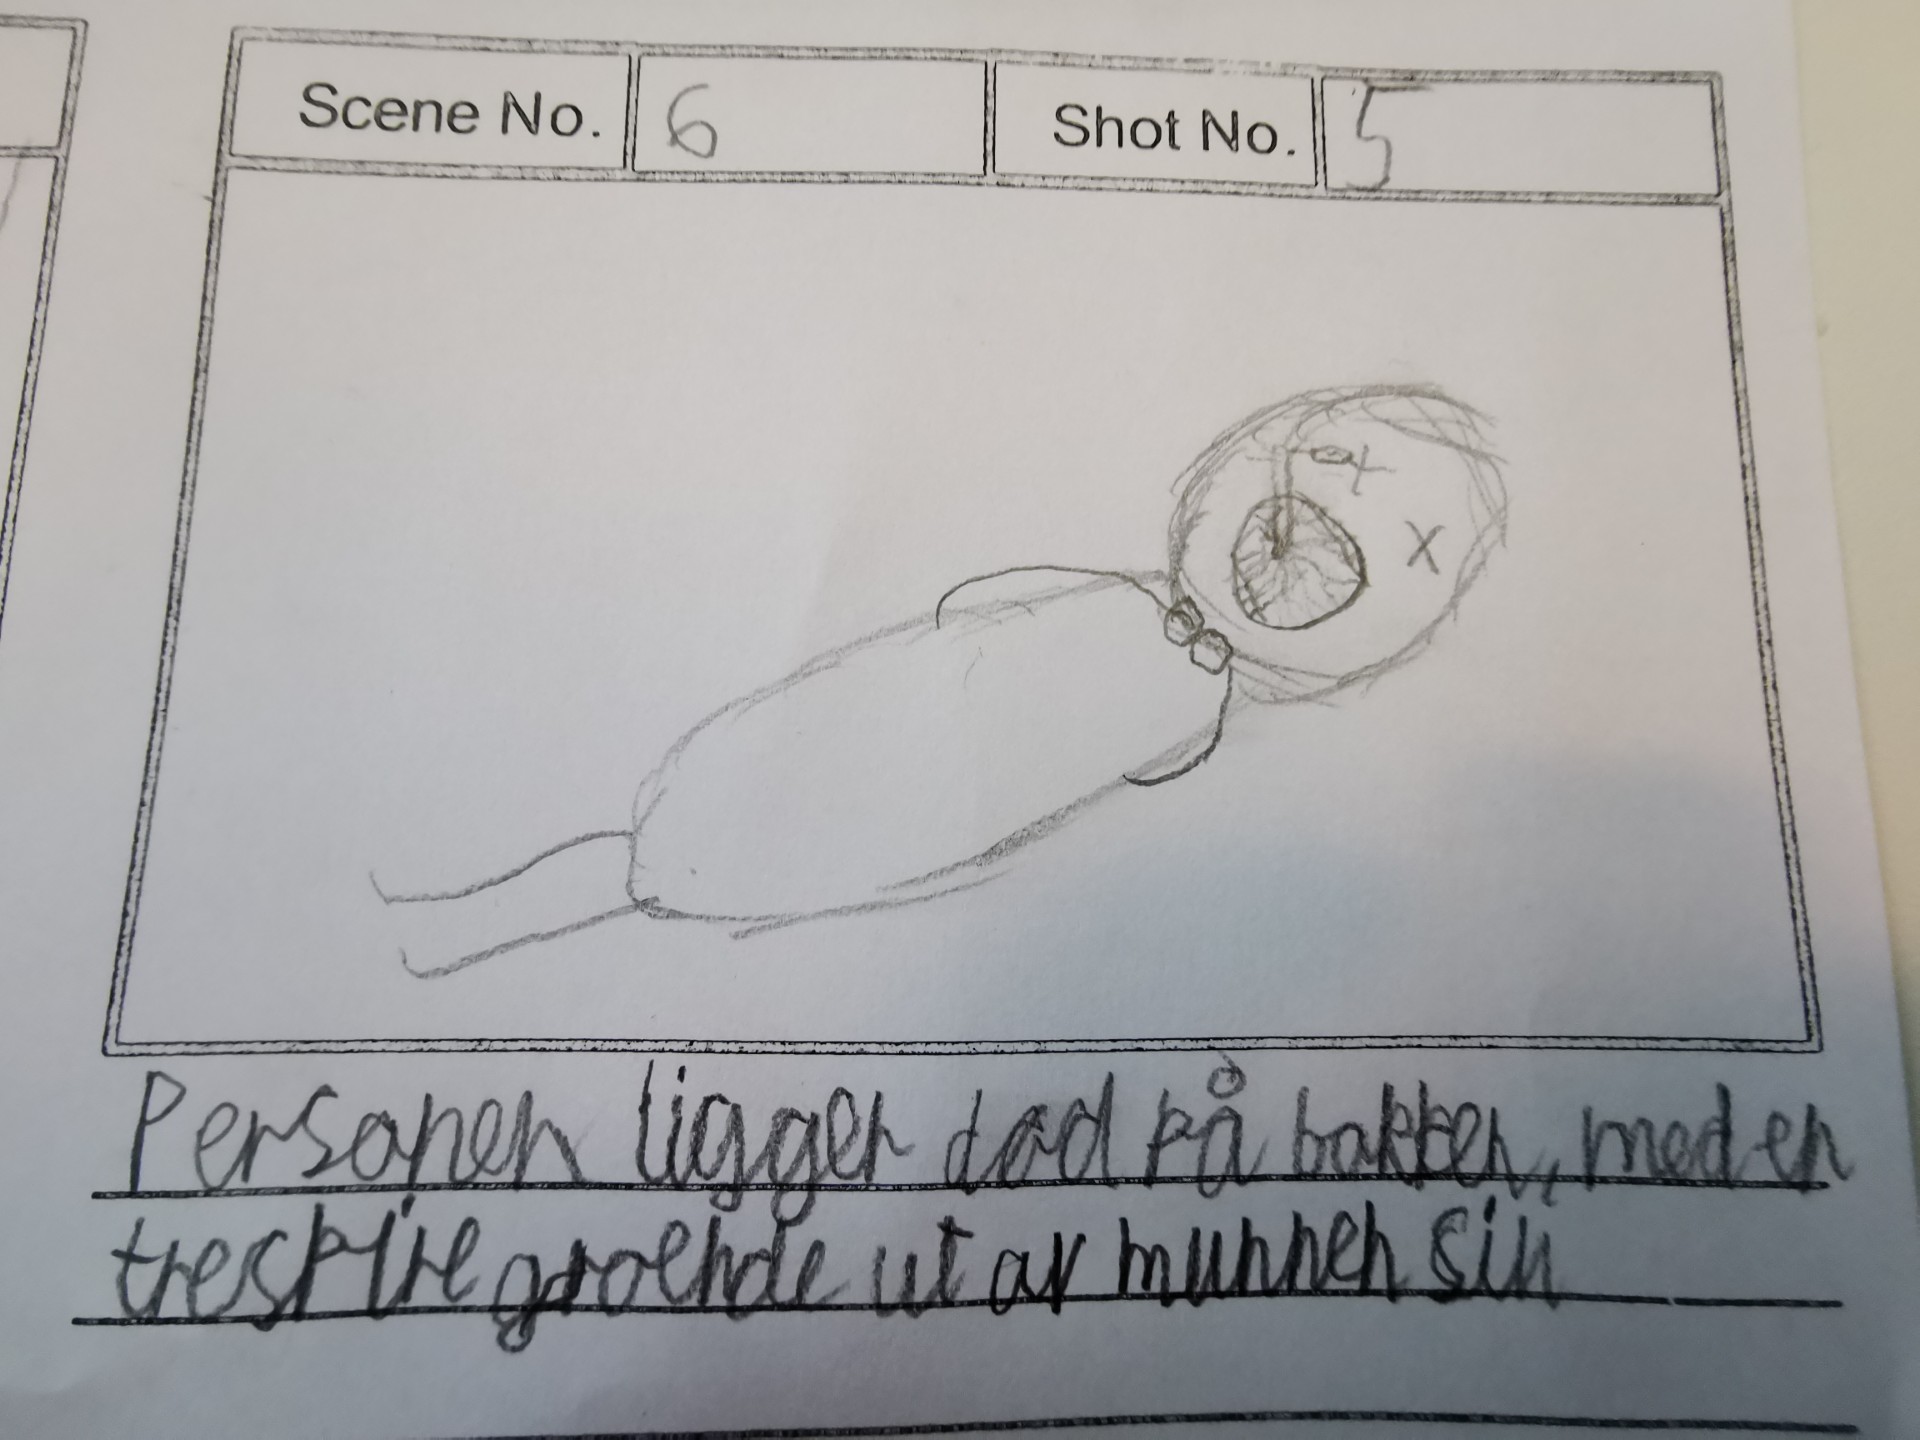 Scene No. 6 Shot No. 5
Personen ligger død på bakken, med en
trespire groende ut av munnen sin